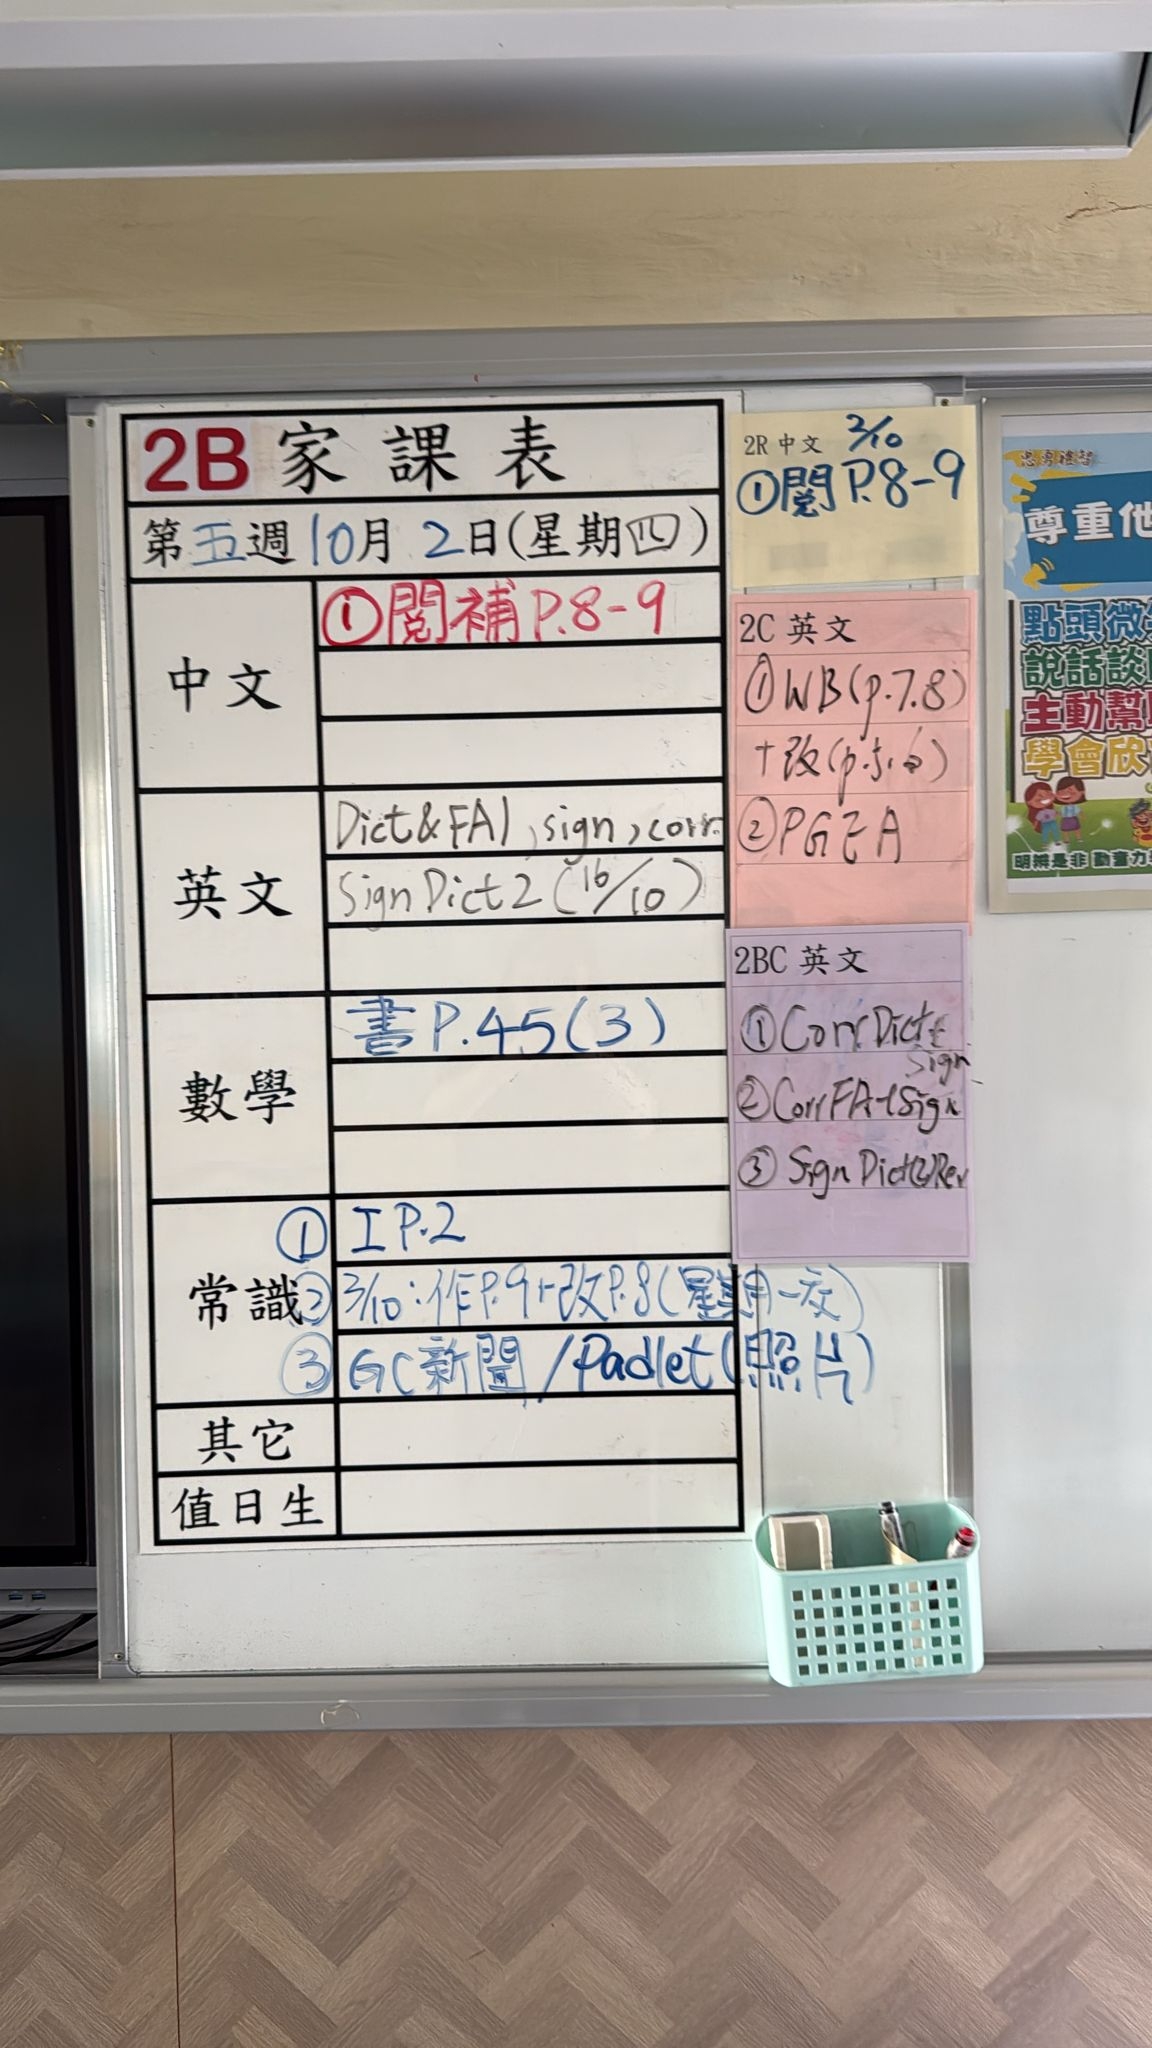 2B 家課表
第五週10月2日(星期四)
中文
①閱補P.8-9
英文
Dict&FA1, sign, corr.
Sign Dict 2 (16/10)
數學
書P.45(3)
常識
① I P.2
② 3/10:作P.9+改P.8(星期一交)
③ GC新聞/Padlet(照片)
其它
值日生
2R 中文 2/10
①閱P.8-9
2C 英文
①WB(p.7.8)
+改(p.5.6)
②PGEA
2BC 英文
①Corr Dict &
Sign
②Corr FA+Sign
③Sign Dict(2)Rev
忠勇禮智
尊重他
點頭微笑
說話談
主動幫
學會欣
明辨是非 勤奮力